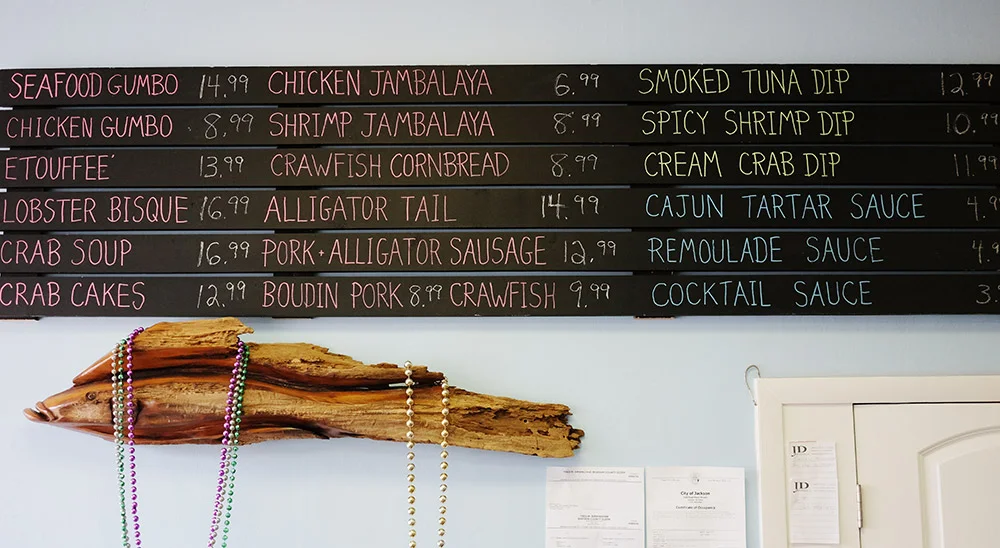 SEAFOOD GUMBO 14.99 CHICKEN JAMBALAYA 6.99 SMOKED TUNA DIP 12.99
CHICKEN GUMBO 8.99 SHRIMP JAMBALAYA 8.99 SPICY SHRIMP DIP 10.99
ETOUFFEÉ 13.99 CRAWFISH CORNBREAD 8.99 CREAM CRAB DIP 11.99
LOBSTER BISQUE 16.99 ALLIGATOR TAIL 14.99 CAJUN TARTAR SAUCE 4.9
CRAB SOUP 16.99 PORK + ALLIGATOR SAUSAGE 12.99 REMOULADE SAUCE 4.9
CRAB CAKES 12.99 BOUDIN PORK 8.99 CRAWFISH 9.99 COCKTAIL SAUCE 3.
City of Jackson
Certificate of Occupancy
JD
JD